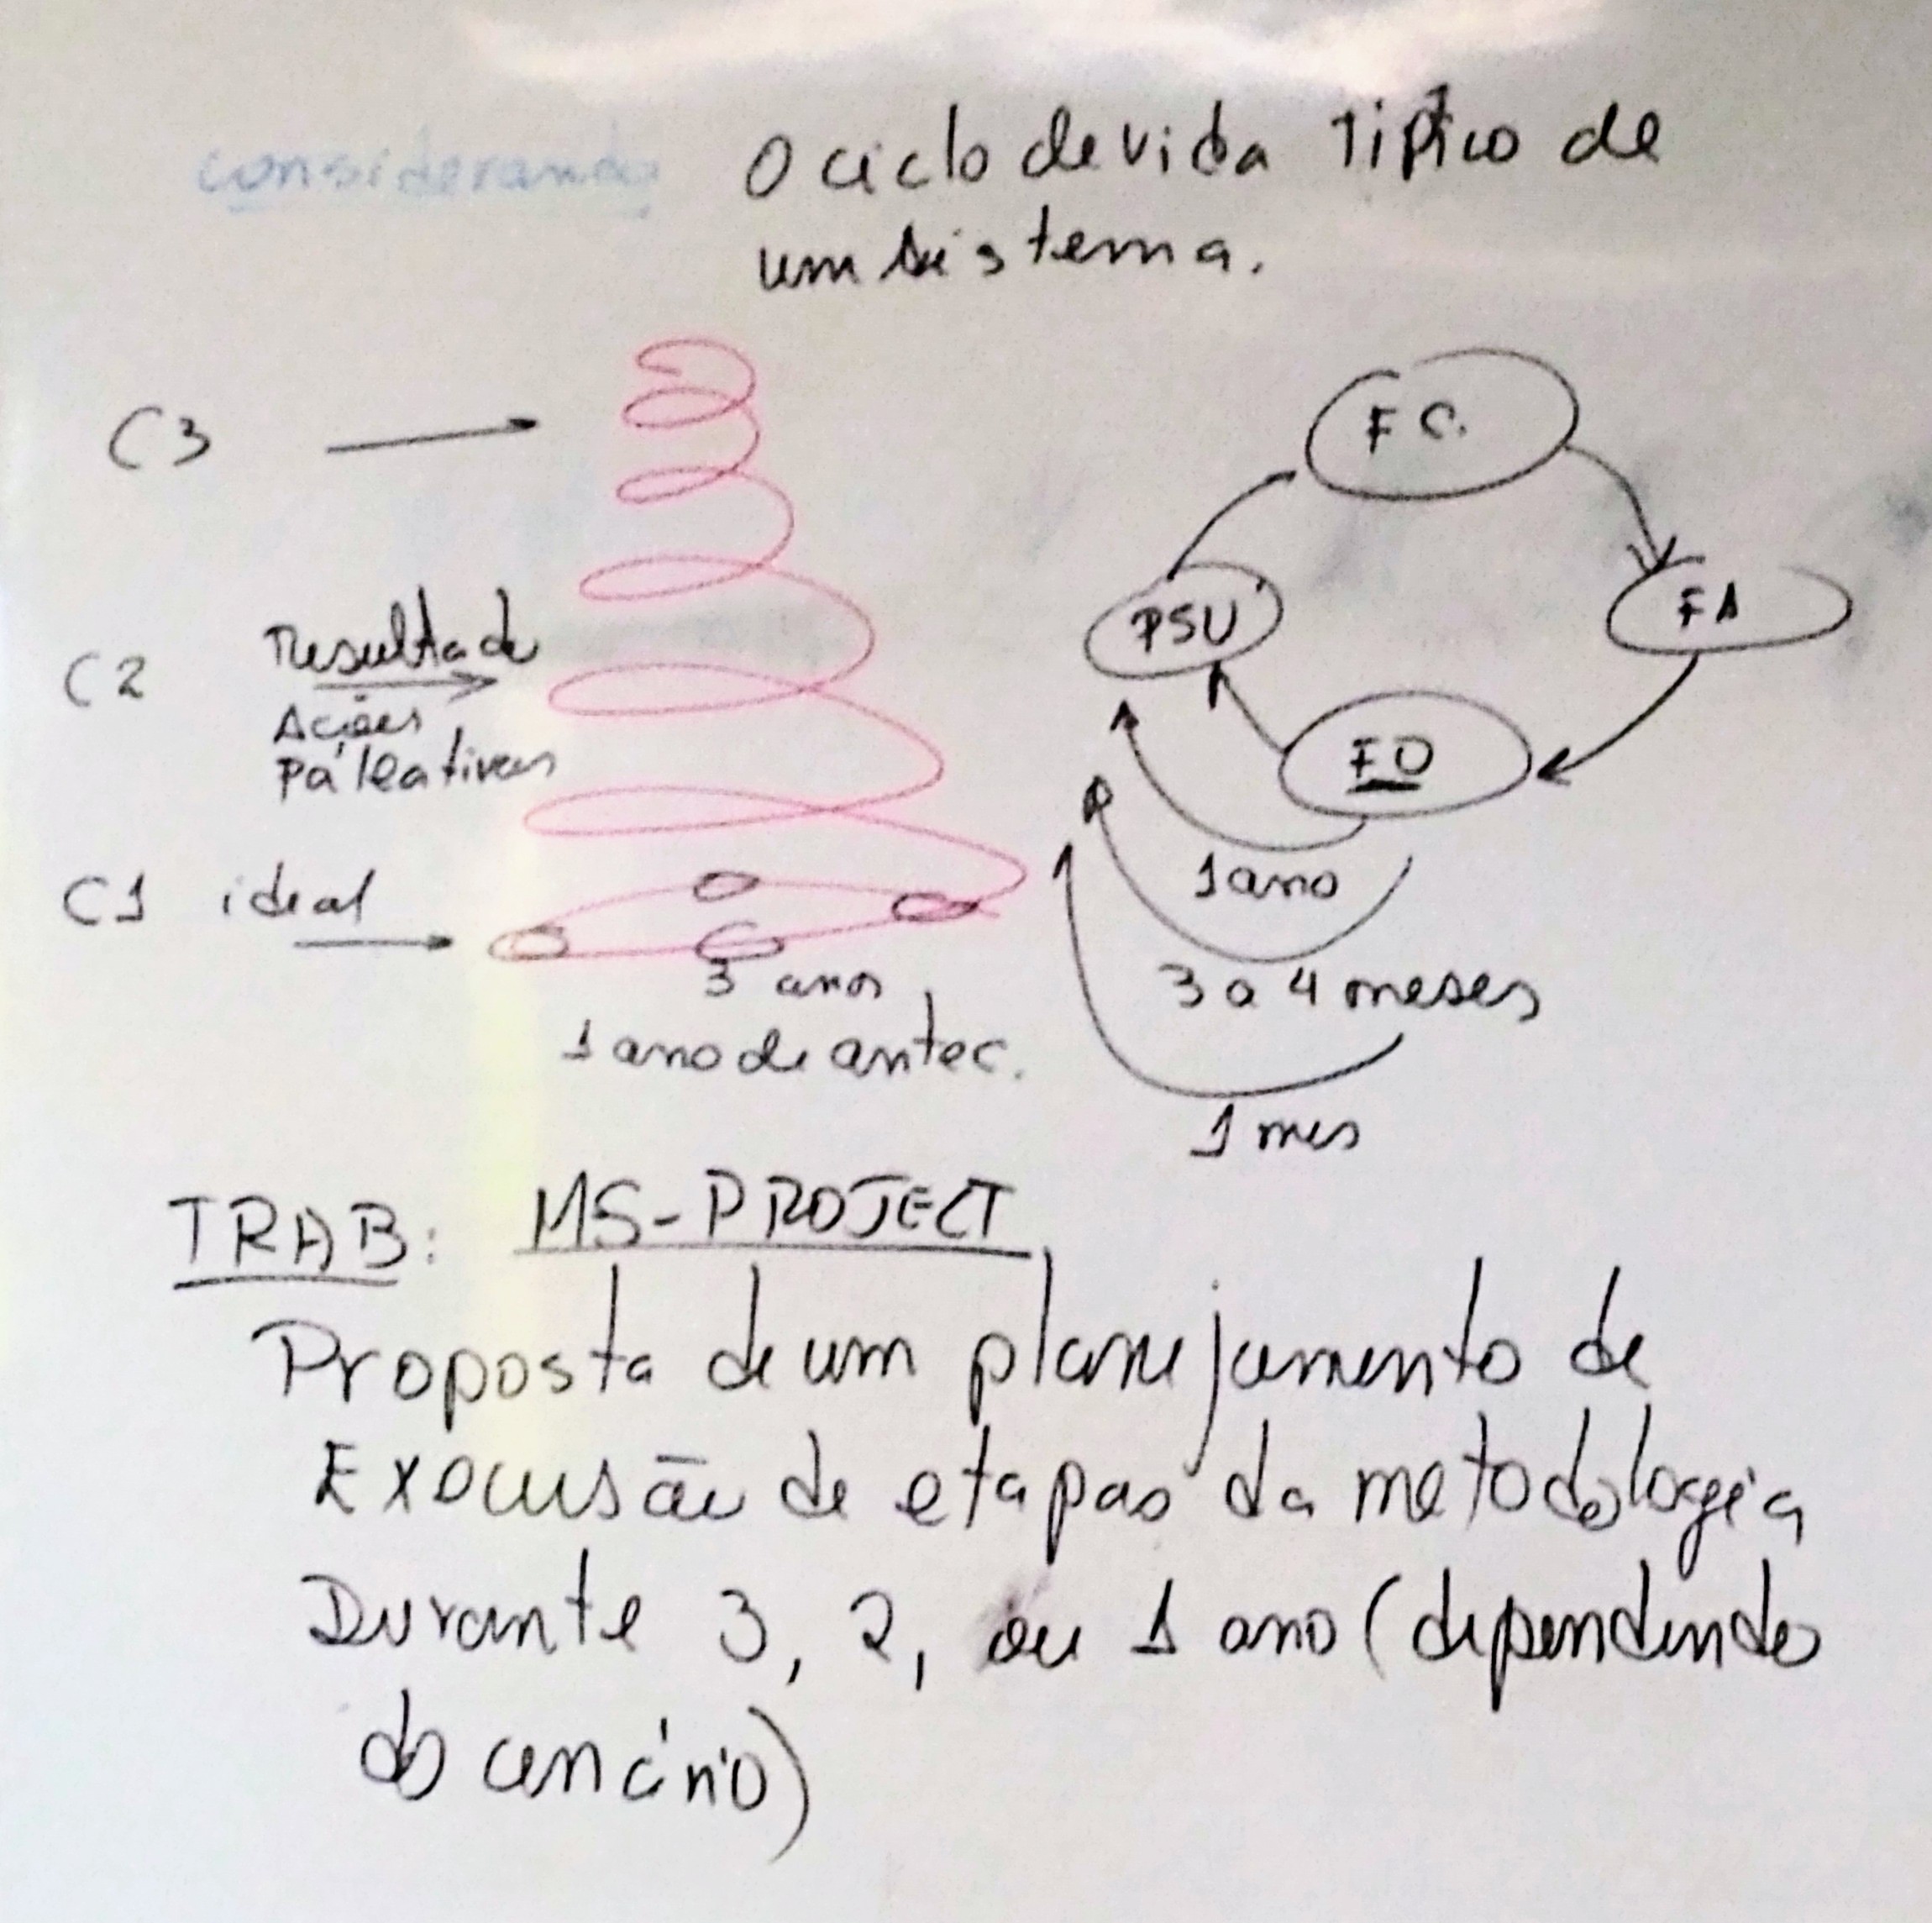 considerando O ciclo de vida Típico de
um sistema.
C3
FC.
PSU
FA
C2 Resultado
Ações
Páleativas
FO
1 ano
C1 ideal
3 anos
1 ano de antec.
3 a 4 meses
1 mes
TRAB: MS-PROJECT
Proposta de um planejamento de
Execusão de etapas da metodologia
Durante 3, 2, ou 1 ano (dependendo
do cenário)